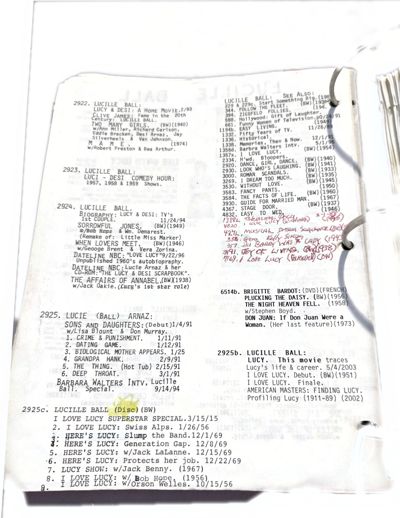 2922. LUCILLE BALL:
LUCY & DESI: A Home Movie.2/93
CLIVE JAMES: Fame in the 20th
Century: LUCILLE BALL.
TWO MANY GIRLS. (BW)(1940)
w/Ann Miller, Richard Carlson,
Eddie Bracken, Desi Arnaz, Jay
Silverheels & Van Johnson.
M A M E. (1974)
w/Robert Preston & Bea Arthur.
2923. LUCILLE BALL:
LUCI - DESI COMEDY HOUR:
1957, 1958 & 1969 Shows.
2924. LUCILLE BALL:
BIOGRAPHY: LUCY & DESI: TV's
1st COUPLE. 10/24/94
SORROWFUL JONES. (BW)(1949)
w/Bob Hope & Wm. Demarest.
(Remake of: Little Miss Marker)
WHEN LOVERS MEET. (BW)(1946)
w/George Brent & Vera Zorina.
DATELINE NBC: "LOVE LUCY"9/22/96
Unpublished 1960's autobiography.
DATELINE NBC: Lucie Arnaz & her
CD-ROM: "THE LUCY & DESI SCRAPBOOK".
THE AFFAIRS OF ANNABEL(BW)(1938)
w/Jack Oakie.
2925. LUCIE (BALL) ARNAZ:
SONS AND DAUGHTERS:(Debut)1/4/91
w/Lisa Blount & Don Murray.
1. CRIME & PUNISHMENT. 1/11/91
2. DATING GAME. 1/12/91
3. BIOLOGICAL MOTHER APPEARS. 1/25
4. GRANDPA HANK. 2/9/91
5. THE TWINS. (Hot Tub) 2/15/91
6. DEEP THROAT. 3/1/91
BARBARA WALTERS INTV. Lucille
Ball. Special. 9/14/94
2925c. LUCILLE BALL (Disc)(BW)
I LOVE LUCY SUPERSTAR SPECIAL.3/15/15
2. I LOVE LUCY: Swiss Alps. 1/26/56
3. HERE'S LUCY: Slump the Band.12/1/69
4. HERE'S LUCY: Generation Gap. 12/8/69
5. HERE'S LUCY: w/Jack LaLanne. 12/15/69
6. HERE'S LUCY: Protects her job. 12/22/69
7. LUCY SHOW: w/Jack Benny. (1967)
8. I LOVE LUCY: w/ Bob Hope. (1956)
9. I LOVE LUCY: w/Orson Welles. 10/15/56
LUCILLE BALL: SEE ALSO:
FOLLOW THE FLEET.
ZIEGFELD FOLLIES.
Hollywood: Gift of Laughter.
Funny Women of Television.
EASY LIVING.
Fifty Years of TV.
Historical.
Memories. Then & Now.
Before Walters Intv.
I LOVE LUCY.
H'wd. Bloopers.
DANCE, GIRL, DANCE. (BW)(1940)
LOOK WHO'S LAUGHING. (BW)(1941)
ROMAN SCANDALS. (BW)(1933)
I DREAM TOO MUCH. (BW)(1935)
WITHOUT LOVE. (1950)
FANCY PANTS. (1950)
THE FACTS OF LIFE. (BW)(1960)
GUIDE FOR MARRIED MAN. (1967)
STAGE DOOR. (BW)(1937)
EASY TO WED. (1946)
6514b. BRIGITTE BARDOT:(DVD)(FRENCH)
PLUCKING THE DAISY. (BW)(1956)
THE NIGHT HEAVEN FELL. (1958)
w/Stephen Boyd.
DON JUAN: If Don Juan Were a
Woman. (Her last feature)(1973)
2925b. LUCILLE BALL:
LUCY. This movie traces
Lucy's life & career. 5/4/2003
I LOVE LUCY. Debut. (BW)(1951)
I LOVE LUCY. Finale.
AMERICAN MASTERS: FINDING LUCY.
Profiling Lucy (1911-89) (2002)